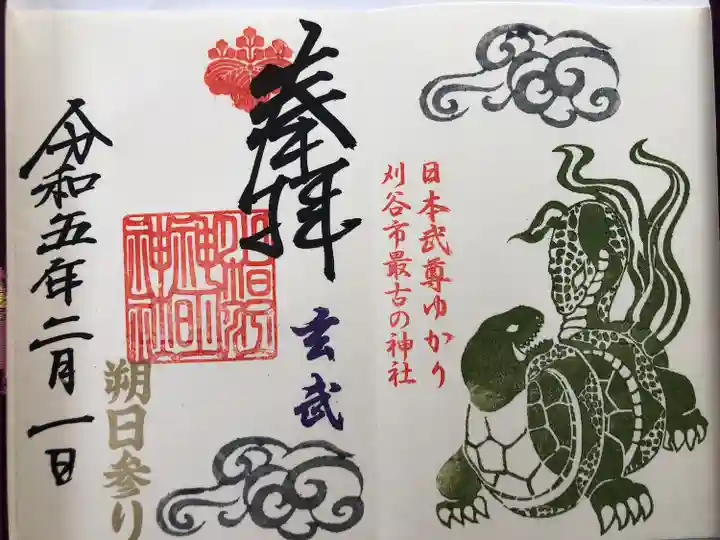 日本武尊ゆかり
刈谷市最古の神社
奉拝
玄武
小垣江
神明
神社
朔日参り
令和五年二月一日